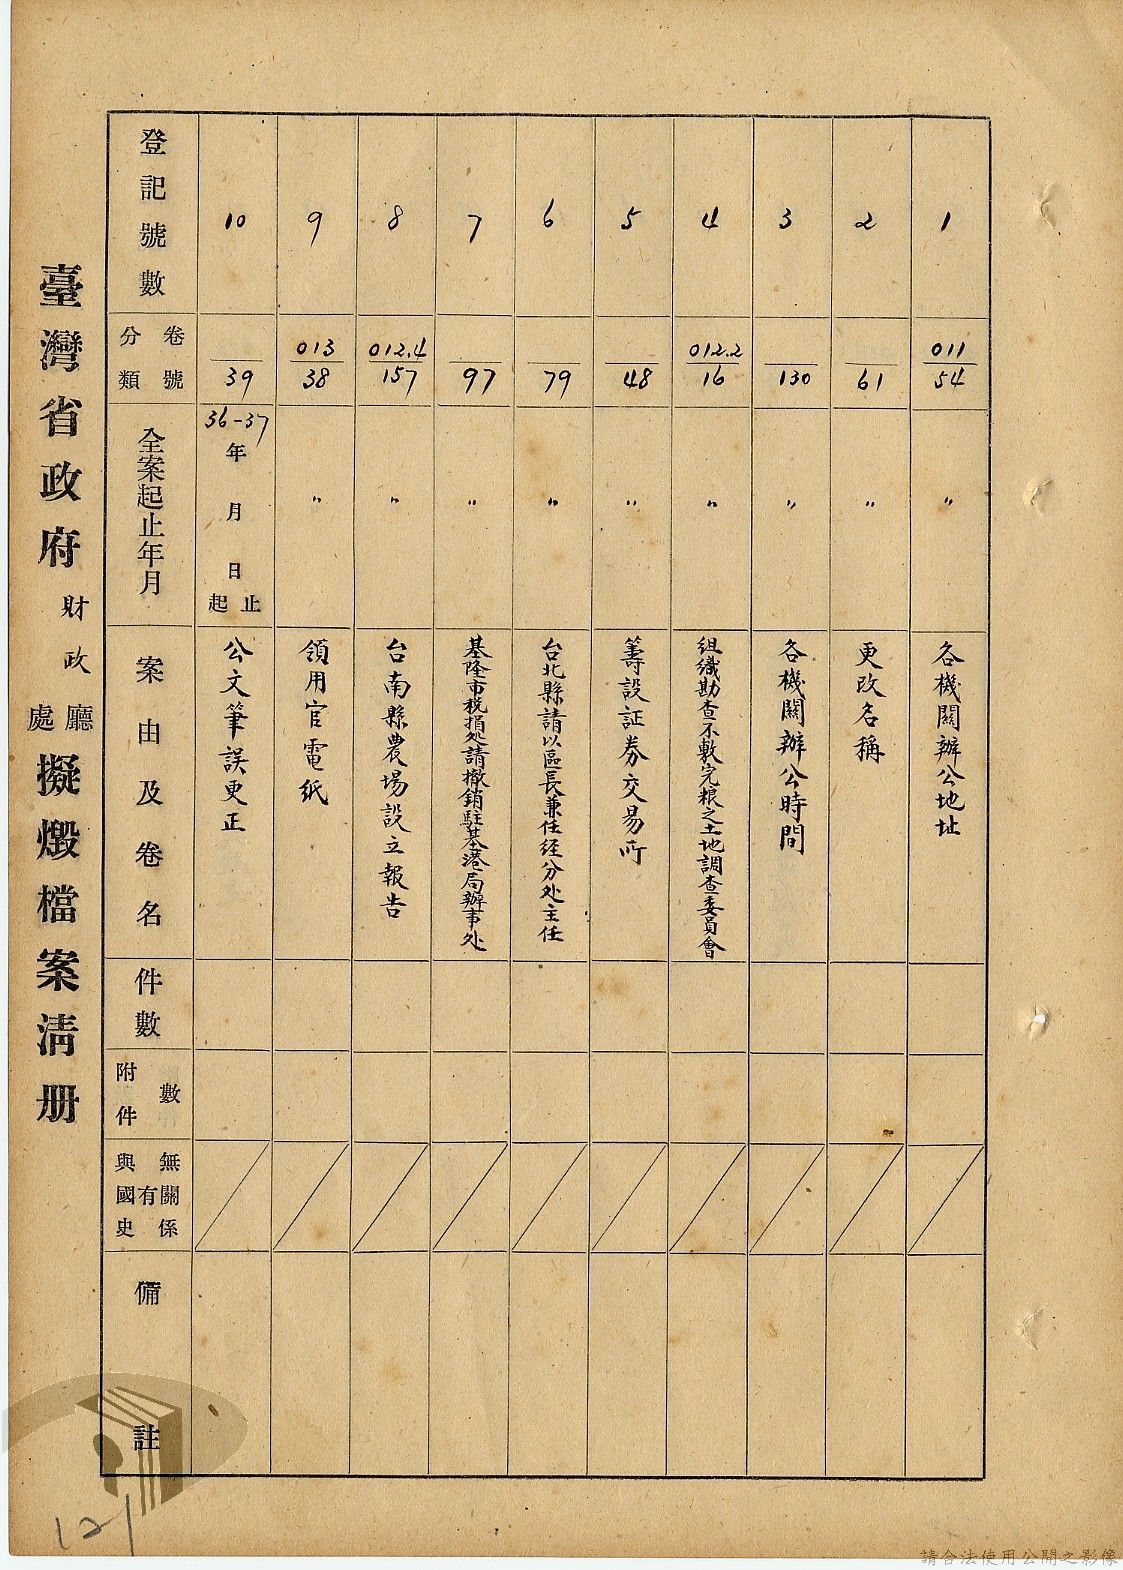 臺灣省政府財政廳處擬燬檔案清册
登記號數
分類
卷號
全案起止年月
案由及卷名
件數
附件
數
與國史
有
無關係
備註
10
39
36-37
年 月 日
起止
公文筆誤更正
9
013
38
〃
領用官電紙
8
012.4
157
〃
台南縣農場設立報告
7
97
〃
基隆市稅捐処請撤銷駐基港局辦事处
6
79
〃
台北縣請以區長兼任経分处主任
5
48
〃
籌設証券交易所
4
012.2
16
〃
組織勘查不敷完粮之土地調查委員會
3
130
〃
各機關辦公時間
2
61
〃
更改名稱
1
011
54
〃
各機關辦公地址
121
請合法使用公開之影像